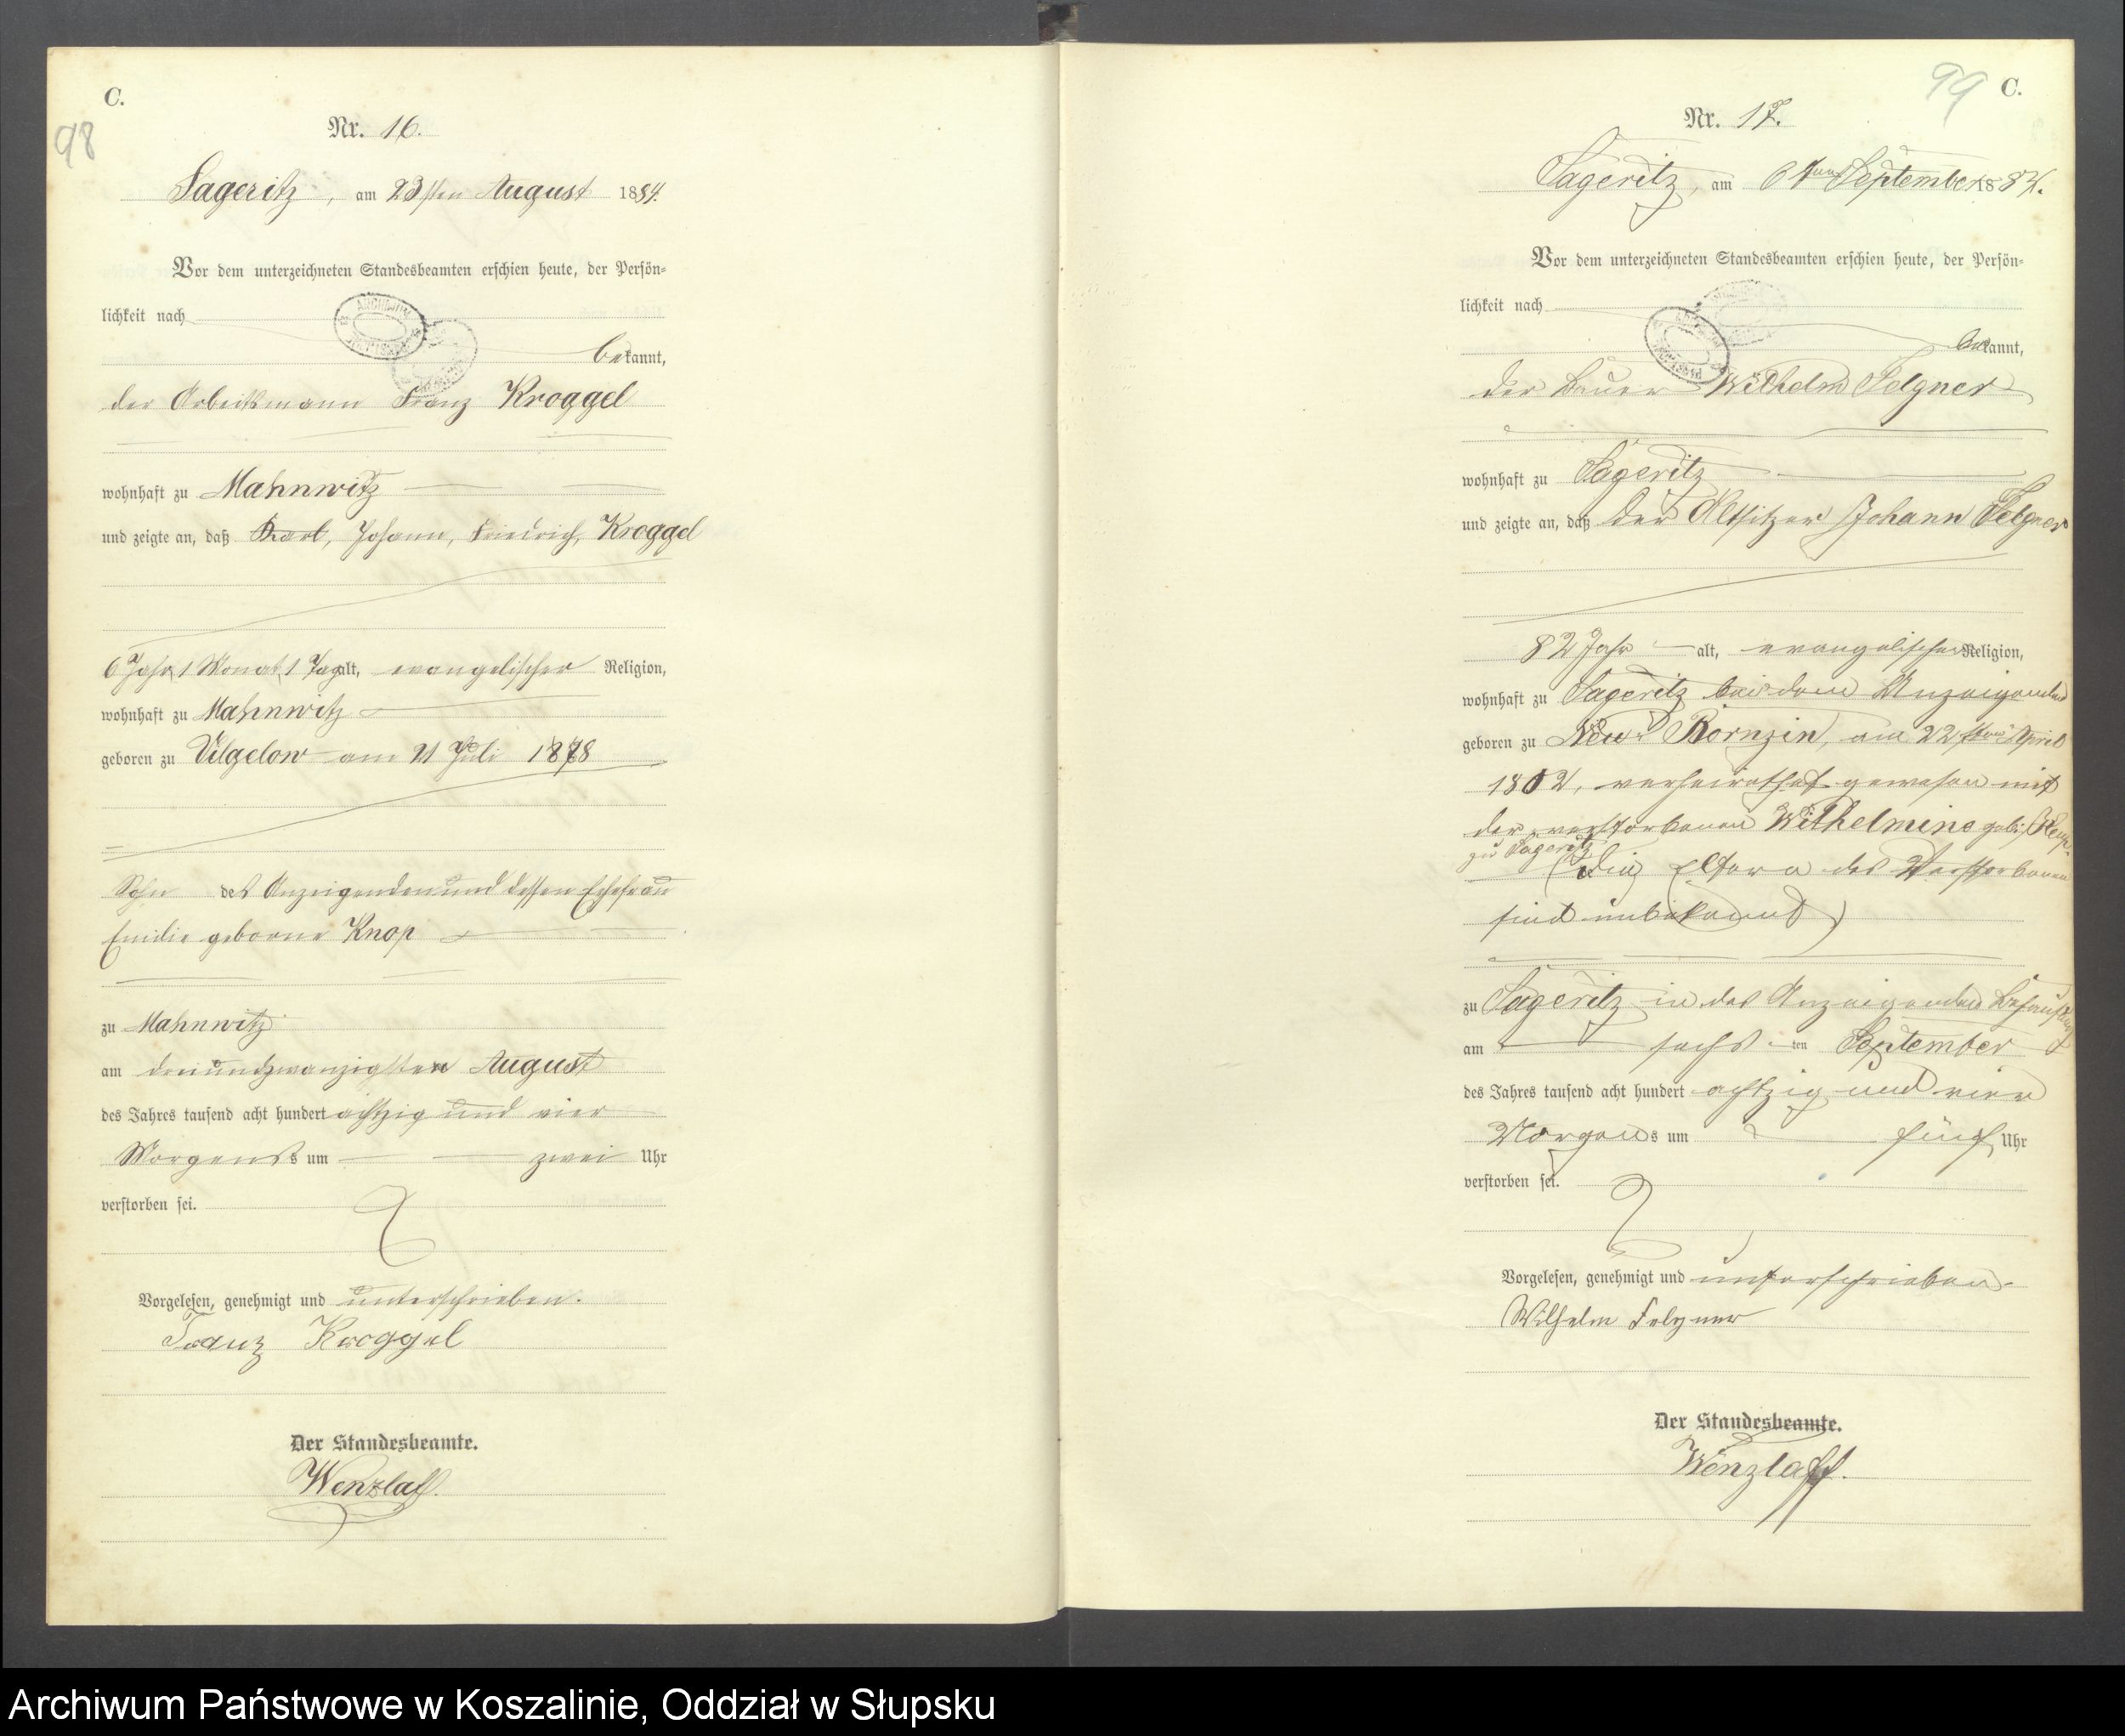 C.
98
Nr. 16.
Sageritz, am 23sten August 1884.
Vor dem unterzeichneten Standesbeamten erschien heute, der Persön-
lichkeit nach
bekannt,
der Arbeitsmann Franz Kroggel
wohnhaft zu Mahnwitz
und zeigte an, daß Karl, Johann, Friedrich, Kroggel
6 Jahr, 1 Monat, 1 Tag alt, evangelischer Religion,
wohnhaft zu Mahnwitz
geboren zu Vilgelow am 21 Juli 1878
Sohn des Anzeigenden und dessen Ehefrau
Emilie geborne Knop
zu Mahnwitz
am dreiundzwanzigsten August
des Jahres tausend acht hundert achtzig und vier
Morgens um zwei Uhr
verstorben sei.
Vorgelesen, genehmigt und unterschrieben.
Franz Kroggel
Der Standesbeamte.
Wenzlaff.
99
C.
Nr. 17.
Sageritz, am 6ten September 1884.
Vor dem unterzeichneten Standesbeamten erschien heute, der Persön-
lichkeit nach
bekannt,
der Bauer Wilhelm Felgner
wohnhaft zu Sageritz
und zeigte an, daß der Altsitzer Johann Felgner
82 Jahr alt, evangelischer Religion,
wohnhaft zu Sageritz bei dem Anzeigenden
geboren zu Neu Bornzin, am 22sten April
1802, verheirathet gewesen mit
der verstorbenen Wilhelmine geb.
zu Sageritz
(Die Eltern des Verstorbenen
sind unbekannt)
zu Sageritz in des Anzeigenden Behausung
am sechsten September
des Jahres tausend acht hundert achtzig und vier
Morgens um fünf Uhr
verstorben sei.
Vorgelesen, genehmigt und unterschrieben.
Wilhelm Felgner
Der Standesbeamte.
Wenzlaff.
Archiwum Państwowe w Koszalinie, Oddział w Słupsku